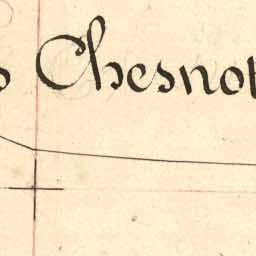 s Chesnot